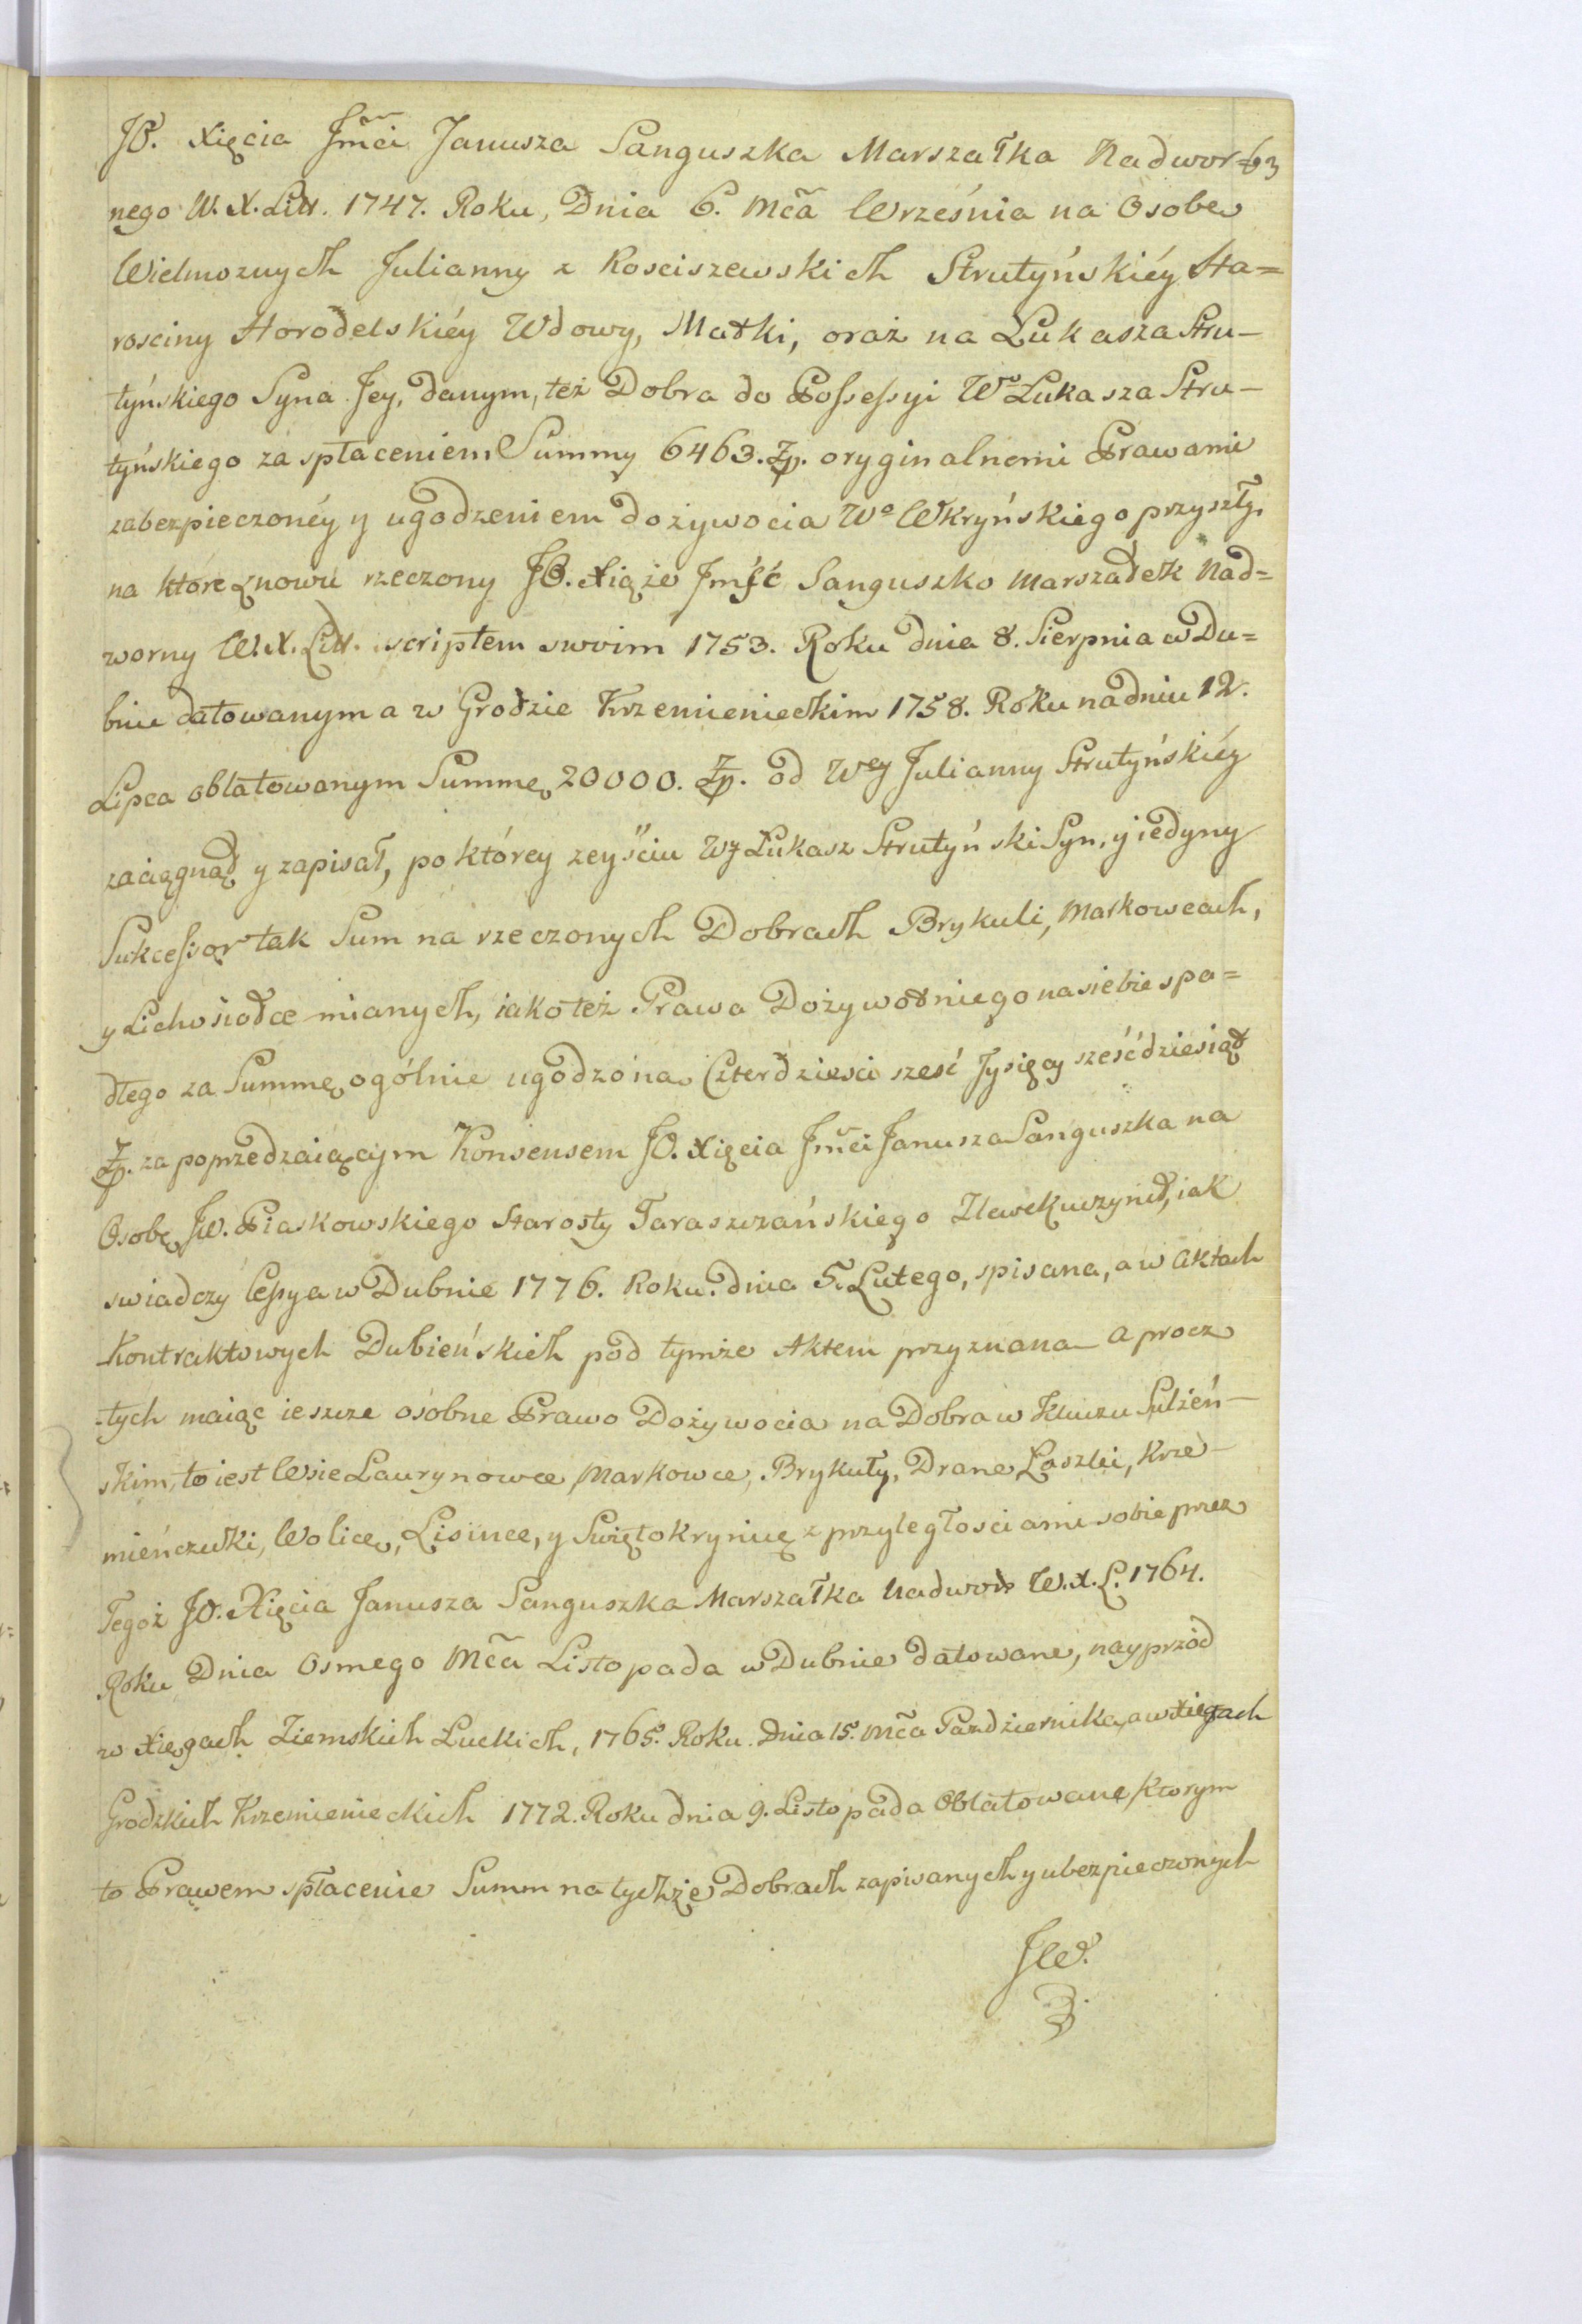 JO. Xięcia Jm̃ci Janusza Sanguszka Marszałka Nadwor= 63
nego W. X. Litt. 1747. Roku, Dnia 6. Mc̃a Września na Osobę
Wielmoznych Julianny z Kosciszewskich Strutyńskiéy Sta=
rosciny Horodelskiéy Wdowy, Matki, oraż na Łukasza Stru-
tyńskiego Syna Jey, danym, też Dobra do Possessyi Wo Łukasza Stru-
tyńskiego za spłaceniem Summy 6463. Zp. oryginalnemi Prawami
zabezpieczonéy y ugodzeniem dożywocia Wo Wkryńskiego przyszły,
na które znowu rzeczony JO. Xiąże Jmść Sanguszko Marszałek Nad=
worny W. X. Litt. scriptem swoim 1753. Roku dnia 8. Sierpnia w Du=
bnie datowanym a w Grodzie Krzemienieckim 1758. Roku na dniu 12.
Lipca oblatowanym Summę 20000. Zp. od Wey Julianny Strutyńskiéy
zaciągnął y zapisał, po którey zeyściu Wy Łukasz Strutyński Syn, y iedyny
Sukcessor tak Sum na rzeczonych Dobrach Brykuli, Markowcach,
y Lichosiołce mianych, iako też Prawa Dożywotniego na siebie spa=
dłego za Summę ogólnie ugodzoną Czterdziesci sześć Tysięcy sześćdziesiąt
Zp. za poprzedzaiącym Konsensem JO. Xięcia Jm̃ci Janusza Sanguszka na
Osobę JW. Piaskowskiego Starosty Taraszczańskiego Zlewek uczynił, iak
swiadczy Cessya w Dubnie 1776. Roku. dnia 5. Lutego, spisana, a w Aktach
Kontraktowych Dubieńskich pod tymże Aktem przyznana a procz
tych maiąc ieszcze osobne Prawo Dożywocia na Dobra w Kluczu Sulżeń-
skim, to iest Wsie Laurynowce, Markowce, Brykuły, Drane Łoszki, Krze-
mieńczuki, Wolicę, Lisince, y Swiętokrynię z przyległosciami sobie przez
Tegoż JO. Xięcia Janusza Sanguszka Marszałka Nadwor W. X. L. 1764.
Roku Dnia Osmego Mc̃a Listopada w Dubnie datowane, nayprzód
w Xięgach Ziemskich Łuckich, 1765. Roku. Dnia 15. Mc̃a Pazdziernika, a w Xięgach
Grodzkich Krzemienieckich 1772. Roku dnia 9. Listopada Oblatowane, ktorym
to Prawem spłacenie Summ na tychże Dobrach zapisanych y ubezpieczonych
JW.